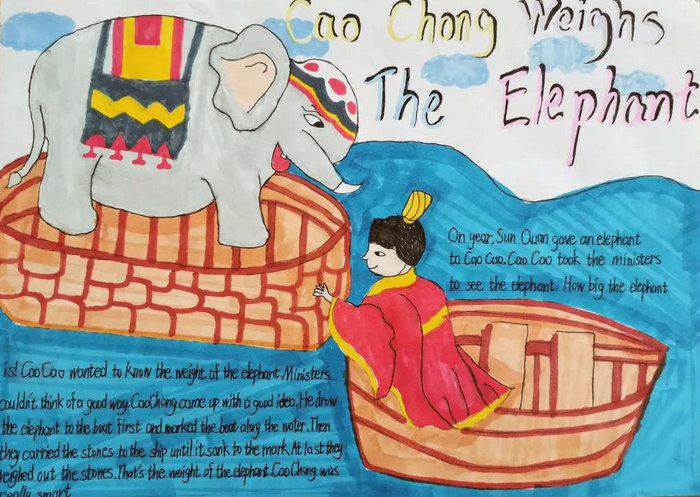 Cao Chong Weighs
The Elephant
On year, Sun Quan gave an elephant
to Cao Cao. Cao Cao took the ministers
to see the elephant. How big the elephant
is! Cao Cao wanted to know the weight of the elephant. Ministers
couldn't think of a good way. Cao Chong came up with a good idea. He drew
the elephant to the boat first and marked the boat along the water. Then
they carried the stones to the ship until it sank to the mark. At last they
weighed out the stones. That's the weight of the elephant. Cao Chong was
really smart